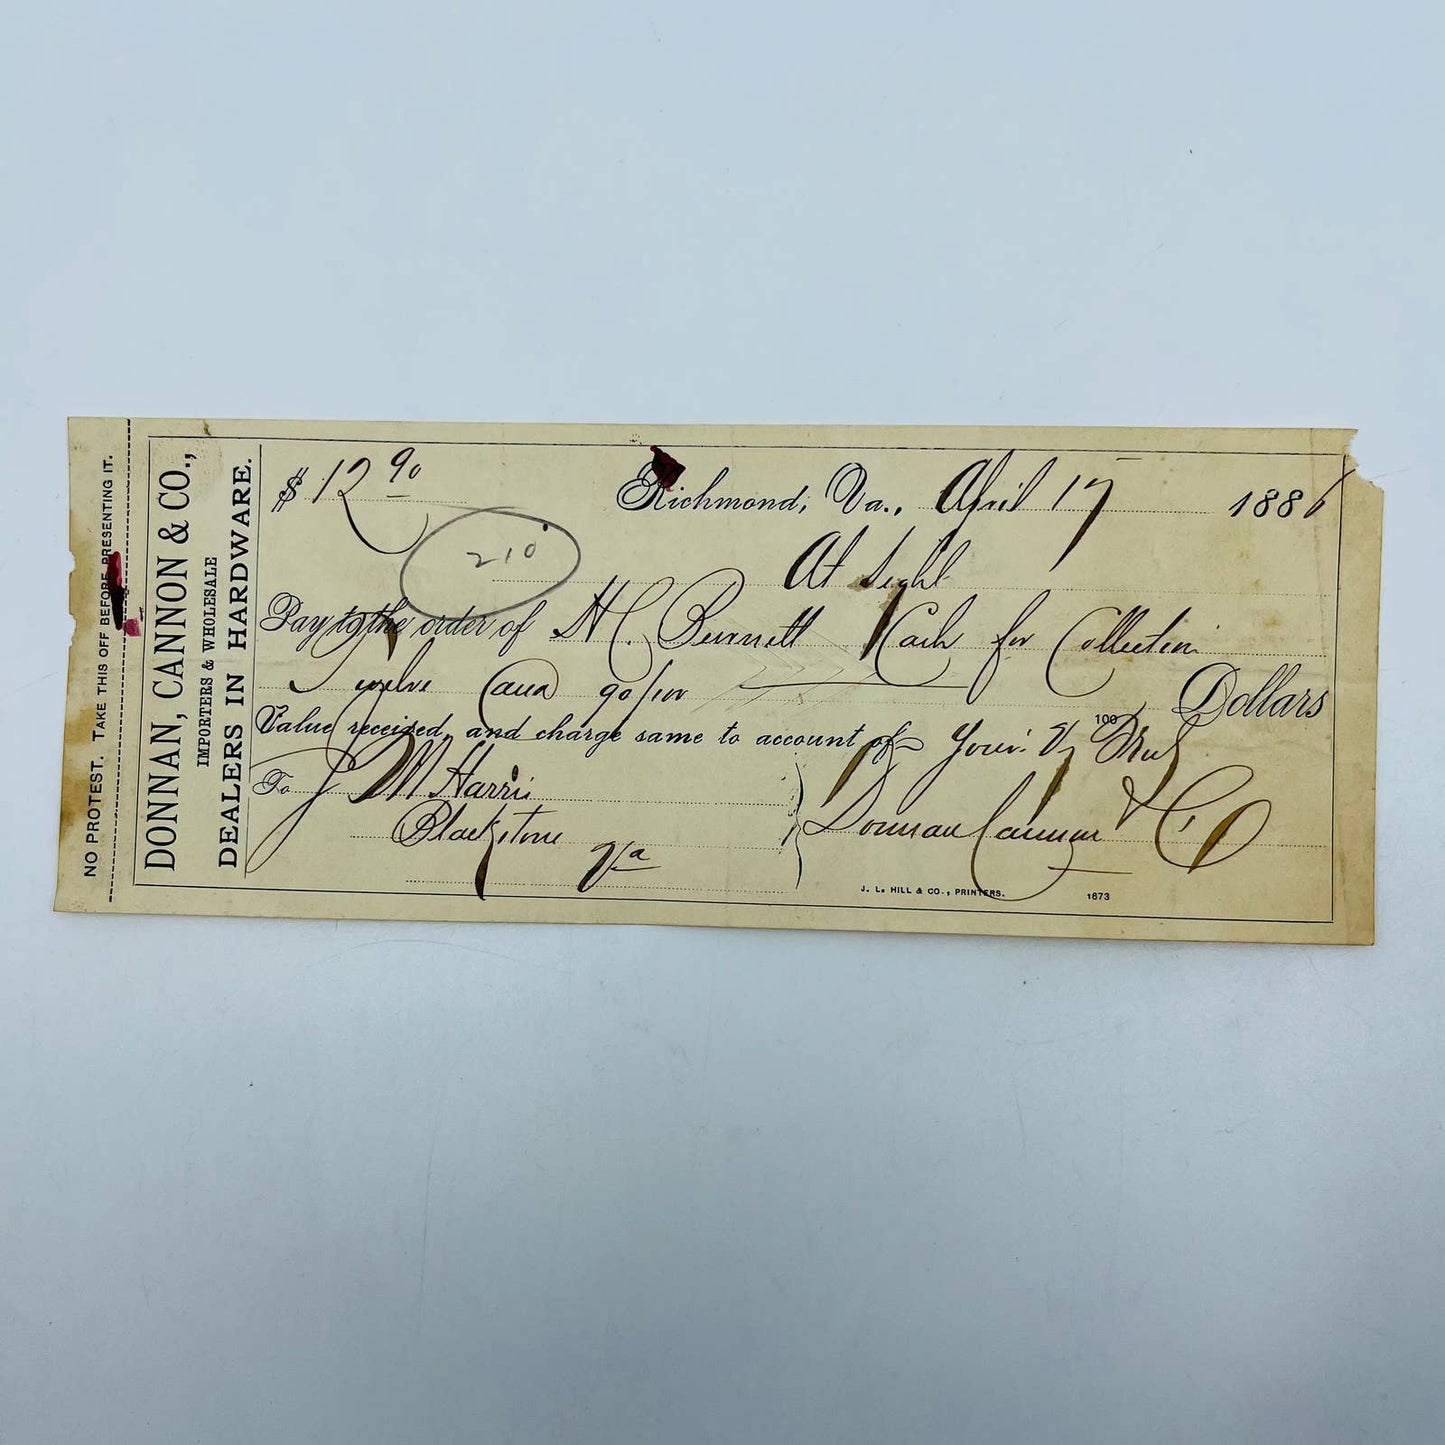 NO PROTEST. TAKE THIS OFF BEFORE PRESENTING IT.
DONNAN, CANNON & CO.,
IMPORTERS & WHOLESALE
DEALERS IN HARDWARE.
$ 12 90 Richmond, Va., April 17 1886
210
At Sight
Pay to the order of H C. Burnett Cash for Collection
Twelve and 90/100 Dollars
Value received, and charge same to account of 100 Yours Truly
To J M Harris
Blackstone
Va
Donnan Cannon & Co
J. L. HILL & CO., PRINTERS. 1673